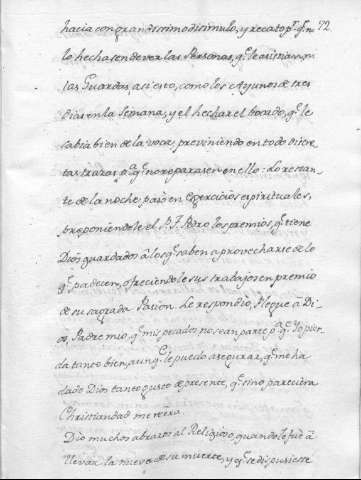 hacia con grandissimo disimulo, y recato pr. q.e no 72
lo hechasen de ver las Personas, q.e le asistian, y
las Guardas, asi esto, como los Ayunos de tres
dias en la semana, y el hechar el bocado, q.e le
sabia bien de la voca; previniendo en todo discre
tas trazas pa. q.e no reparasen en ello: Lo restan
te de la noche, pasò en Exercicios espirituales,
proponiendole el P. F. Pedro los premios, q.e tiene
Dios guardados â los q.e saben aprovecharse de lo
q.e padecen, ofreciendole sus trabajos en premio
de su sagrada Pasion. Le respondio, Plegue â Di
os, Padre mio, q.e mis pecados no sean parte pa. q.e Yo pier
da tanto bien, aunq.e le puedo asegurar, q.e me ha
dado Dios tanto gusto de presente, q.e sino pareciera
Christiandad me riera.
Dio muchos abrazos al Religioso, quando le fuè â
llevar la nueva de su muerte, y q.e se dispusiesse